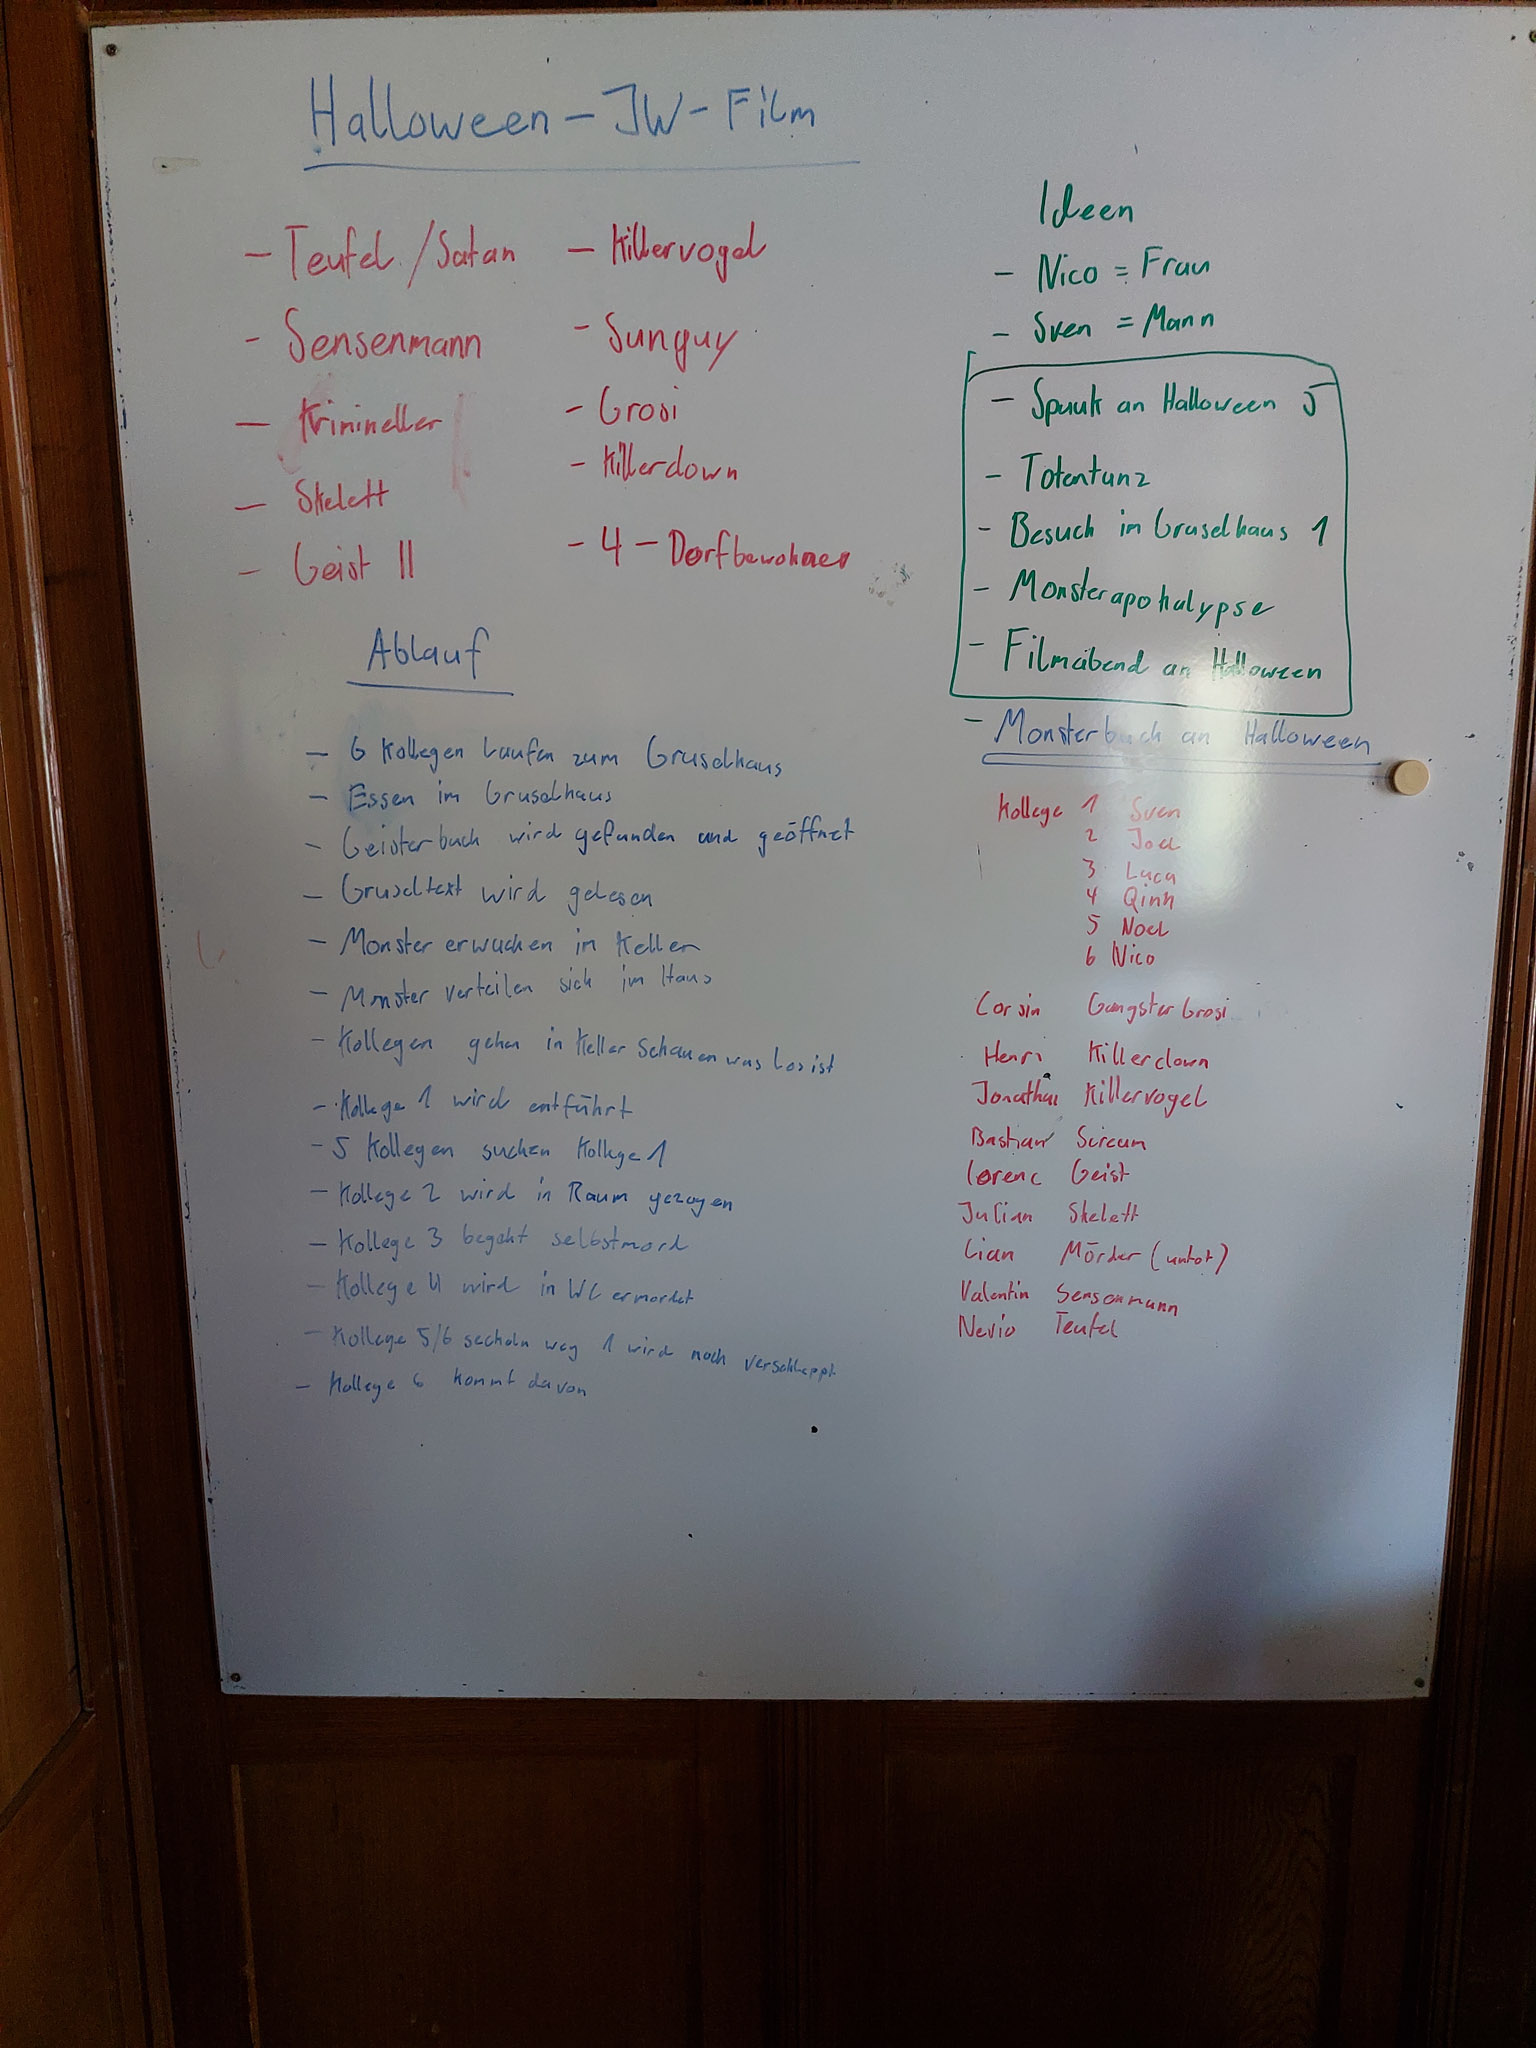 Halloween - JW - Film
- Teufel / Satan
- Sensenmann
- Krimineller
- Skelett
- Geist II
- Killervogel
- Sunguy
- Grosi
- Killerclown
- 4 - Dorfbewohner
Ideen
- Nico = Frau
- Sven = Mann
- Spuuk an Halloween 5
- Totentanz
- Besuch im Gruselhaus 1
- Monsterapokalypse
- Filmabend an Halloween
- Monsterbuch an Halloween
Ablauf
- 6 Kollegen laufen zum Gruselhaus
- Essen im Gruselhaus
- Geisterbuch wird gefunden und geöffnet
- Gruseltext wird gelesen
- Monster erwachen in Keller
- Monster verteilen sich im Haus
- Kollegen gehen in Keller schauen was los ist
- Kollege 1 wird entführt
- 5 Kollegen suchen Kollege 1
- Kollege 2 wird in Raum gezogen
- Kollege 3 begeht selbstmord
- Kollege 4 wird in WC ermordet
- Kollege 5/6 secheln weg 1 wird noch verschleppt
- Kollege 6 kommt davon
Kollege 1 Sven
2 Joel
3 Luca
4 Qinn
5 Noel
6 Nico
Corsin Gangster Grosi
Henri Killerclown
Jonathan Killervogel
Bastian Scream
Lorenc Geist
Julian Skelett
Lian Mörder (untot)
Valentin Sensenmann
Nevio Teufel